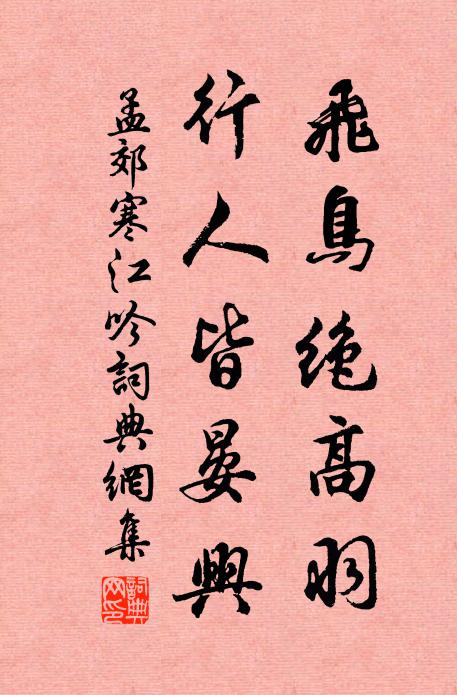 飛鳥絶高羽
行人皆晏興
孟郊寒江吟詞典網集
詞典網印